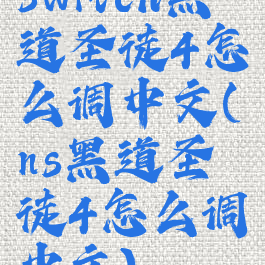 switch黑
道圣徒4怎
么调中文(
ns黑道圣
徒4怎么调
中文)